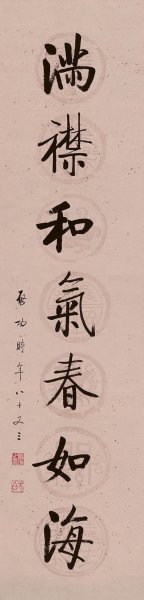 满襟和氣春如海
啟功時年八十又三